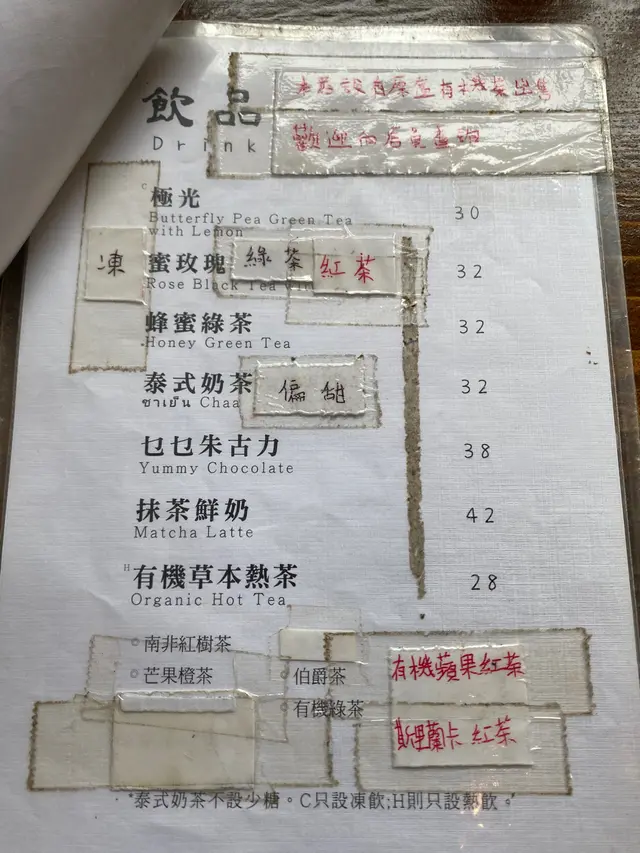 飲品
Drink
本店設有原盒有機茶出售
歡迎向店員查詢
C
極光
Butterfly Pea Green Tea
with Lemon
30
凍
蜜玫瑰
綠茶
紅茶
Rose Black Tea
32
蜂蜜綠茶
Honey Green Tea
32
泰式奶茶
偏甜
ชาเย็น Chaa
32
乜乜朱古力
Yummy Chocolate
38
抹茶鮮奶
Matcha Latte
42
H
有機草本熱茶
Organic Hot Tea
28
南非紅樹茶
芒果橙茶
伯爵茶
有機綠茶
有機蘋果紅茶
斯里蘭卡紅茶
*泰式奶茶不設少糖。C只設凍飲;H則只設熱飲。